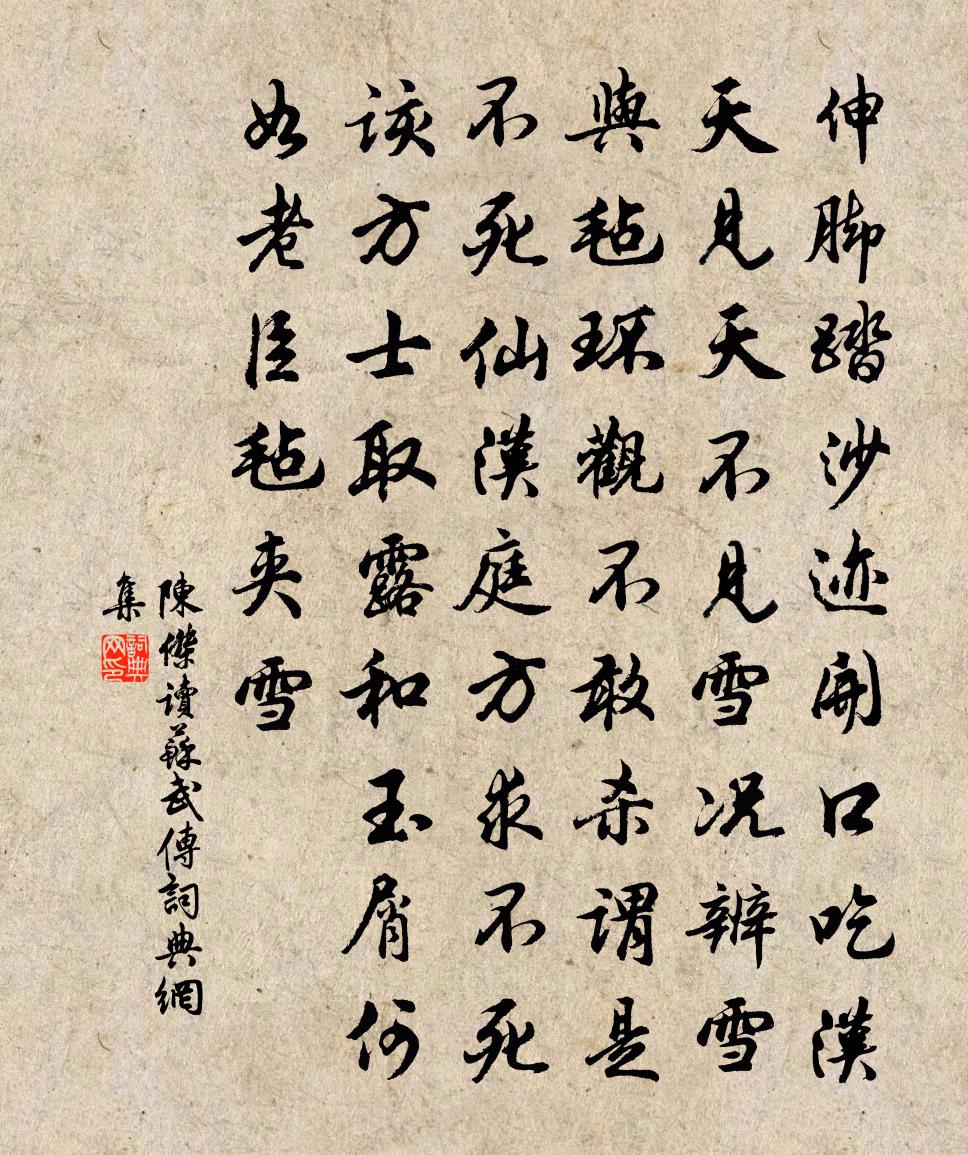 伸脚踏沙迹開口吃漢
天見天不見雪况辨雪
與毡环觀不敢杀謂是
不死仙漢庭方求不死
該方士取露和玉屑何
如老臣毡夹雪
陳傑讀蘇武傳詞典網
集
詞典
网印